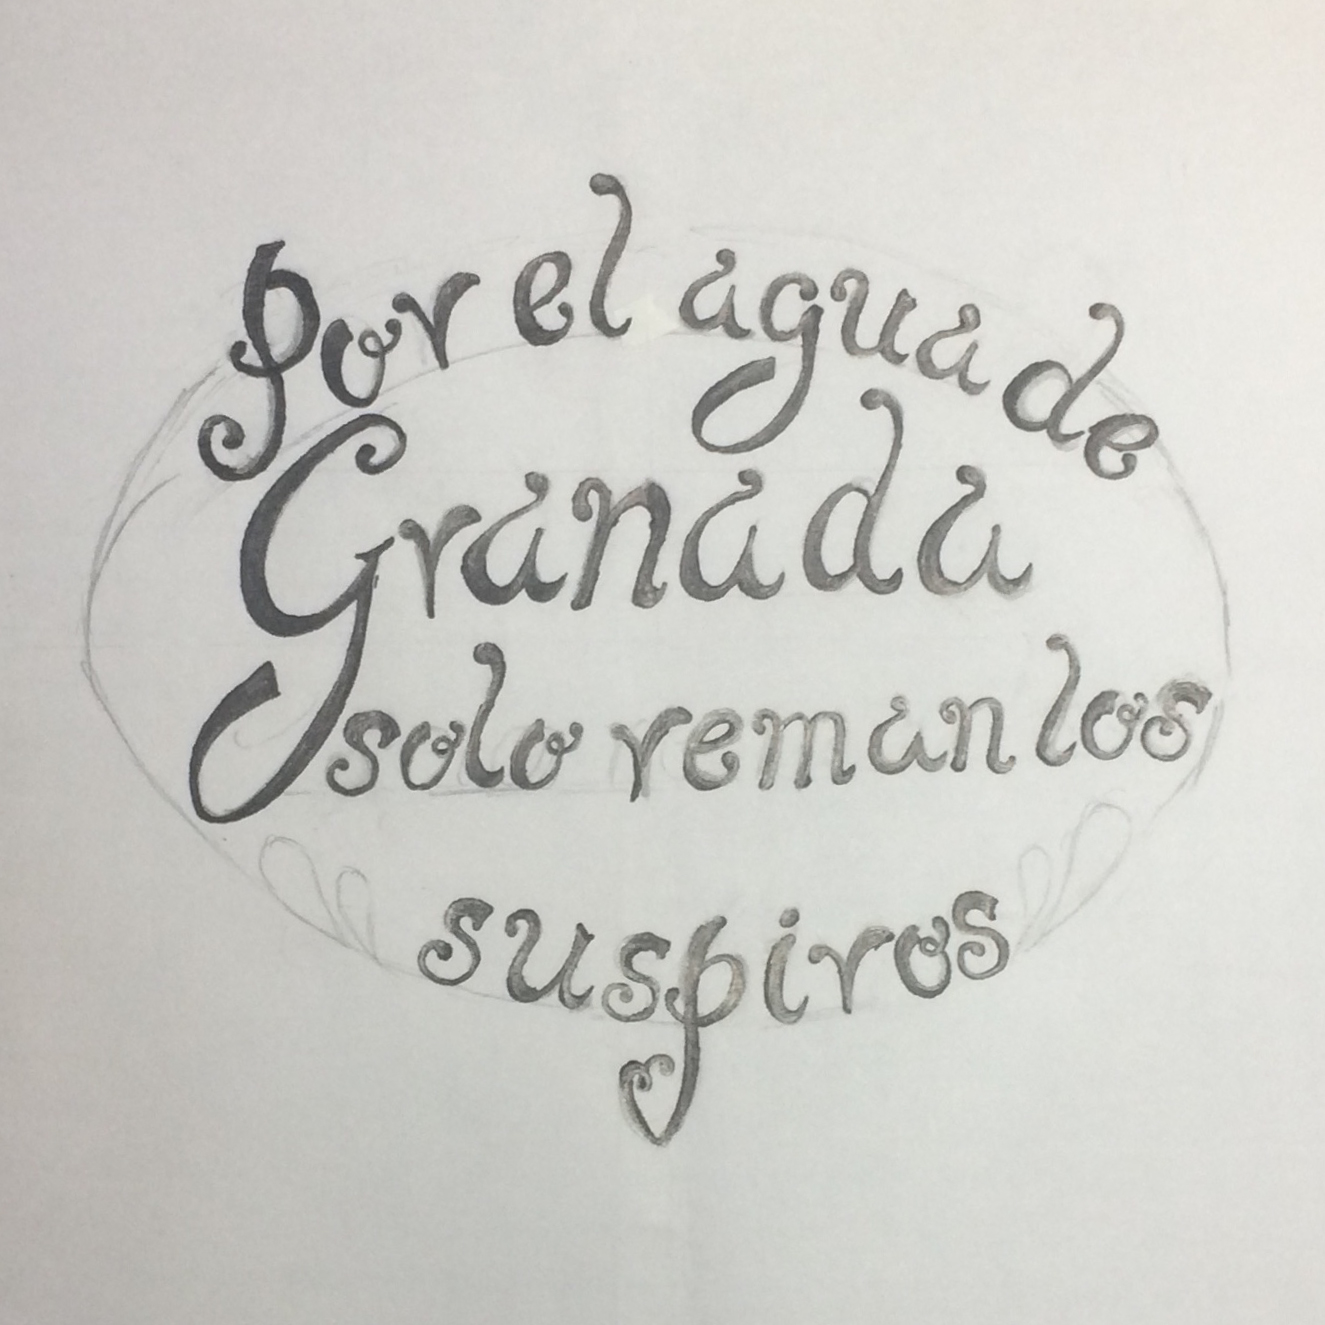 Por el agua de
Granada
solo reman los
suspiros